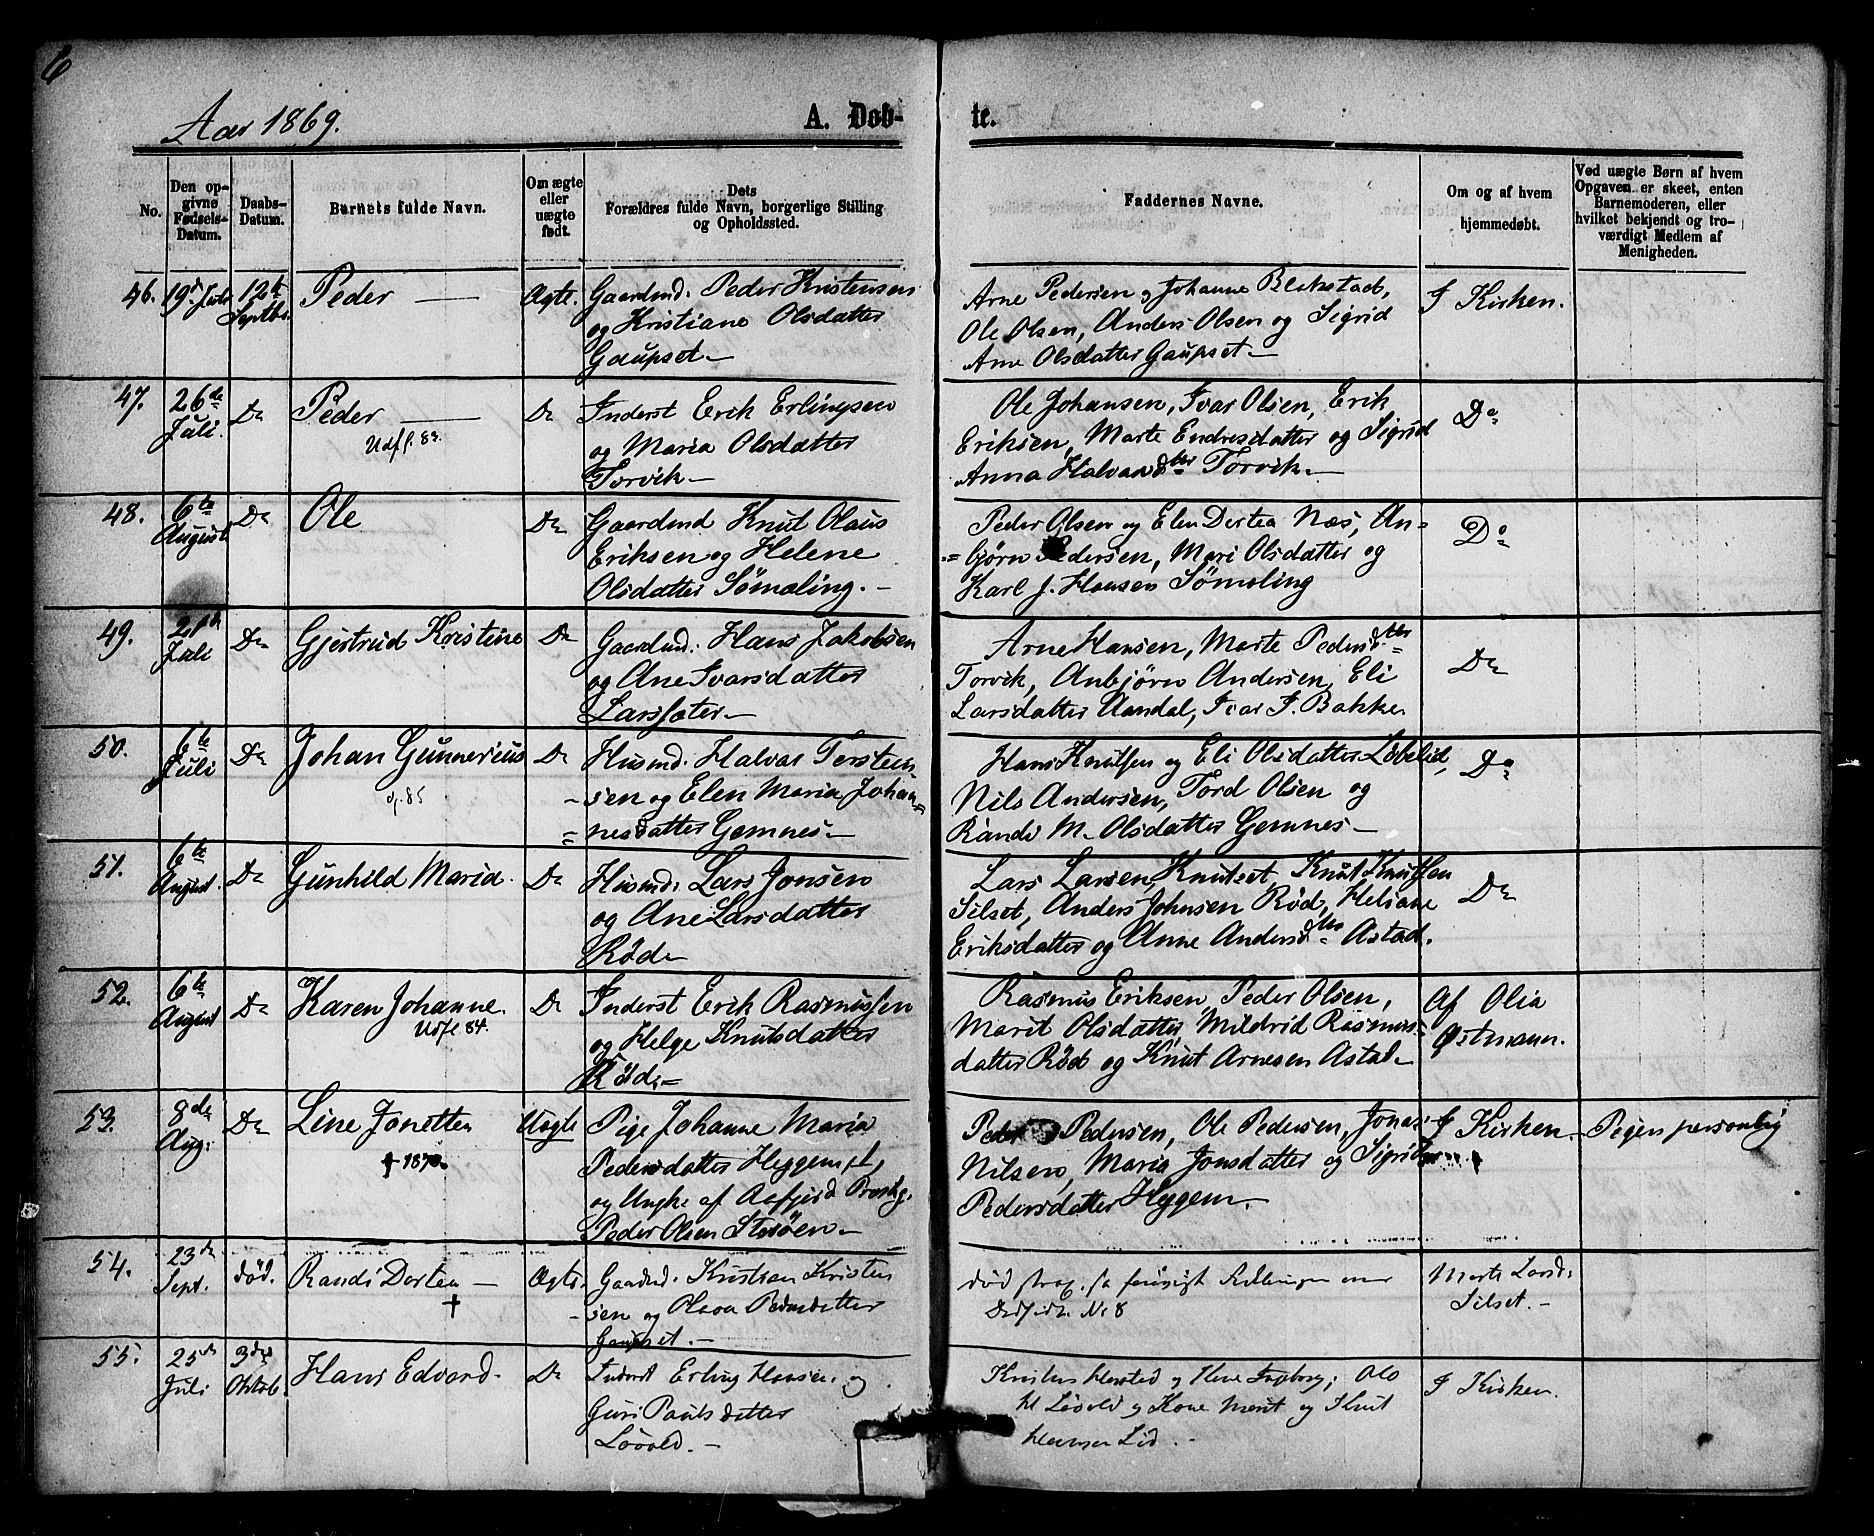 6
Aar 1869.
A. Døb-
te.
No.
Den op-
givne
Fødsels-
Datum.
Daabs-
Datum.
Barnets fulde Navn.
Om ægte
eller
uægte
født.
Dets
Forældres fulde Navn, borgerlige Stilling
og Opholdssted.
Faddernes Navne.
Om og af hvem
hjemmedøbt.
Ved uægte Børn af hvem
Opgaven er skeet, enten
Barnemoderen, eller
hvilket bekjendt og tro-
værdigt Medlem af
Menigheden.
46. 19de Juli 12te Septbr. Peder — Ægte. Gaardmd. Peder Kristensen
og Kristiane Olsdatter
Gaupset. —
Arne Pedersen og Johanne Blekstad,
Ole Olsen, Anders Olsen og Sigrid
Ane Olsdatter Gaupset. —
I Kirken.
47. 26de Juli. Do Peder — Do Inderst Erik Erlingsen
Udfl. 83.
og Maria Olsdatter
Torvik. —
Ole Johansen, Ivar Olsen, Erik
Eriksen, Marte Endresdatter og Sigrid
Anna Halvardsdtter Torvik. —
Do
48. 6te August Do Ole Do Gaardmd Knut Olaus
Eriksen og Helene
Olsdatter Sømoling. —
Peder Olsen og Elen Dortea Næs, An-
bjørn Pedersen, Mari Olsdatter og
Karl J. Hansen Sømoling
Do
49. 21de Juli Do Gjertrud Kristine Do Gaardmd: Hans Jakobsen
og Ane Ivarsdatter
Larssæter. —
Arne Hansen, Marte Pedersdtter
Torvik, Anbjørn Andersen, Eli
Larsdatter Aandal, Ivar I. Bakke.
Do
50. 6te Juli Do Johan Gunnerius Do Husmd: Halvar Torstein-
d. 85
sen og Elen Maria Johan-
nesdatter Gemnes. —
Hans Knutsen og Eli Olsdatter Løbelid,
Nils Andersen, Tord Olsen og
Randi M. Olsdatter Gemnes. —
Do
51. 6te August. Do Gunhild Maria. Do Husmd: Lars Jonsen
og Ane Larsdatter
Rød.
Lars Larsen Knutset, Knut Knutsen
Silset, Anders Johnsen Rød, Heliane
Eriksdatter og Anne Andersdtter Astad.
Do
52. 6te August Do Karen Johanne. Do Inderst Erik Rasmussen
Udfl 84.
og Helge Knutsdatter
Rød. —
Rasmus Eriksen, Peder Olsen,
Marit Olsdatter, Mildrid Rasmus-
datter Rød og Knut Arnesen Astad. —
Af Olia
Østmann.
53. 8de Aug: Do Line Jonetta Uægte Pige Johanne Maria
† 1870.
Pedersdatter Heggem
og Ungk. af Aafjord Præstg.
Peder Olsen Storøen. —
Peder Pedersen, Ole Pedersen, Jonas
Nilsen, Maria Jonsdatter og Sigrid
Pedersdatter Heggem.
I Kirken.
Pigen personlig
54. 23de Sept. død. Randi Dortea — Ægte. Gaardmd. Kristian Kristen-
†
sen og Olava Pedersdatter
Gaupset. —
død No 8
Marte Larsd.
Silset. —
55. 25de Juli 3die Oktob. Hans Edvard. Do Inderst Erling Hansen og
Guri Paulsdatter
Løvold. —
og Kone Merit og Knut
Hansen Lid. —
I Kirken.